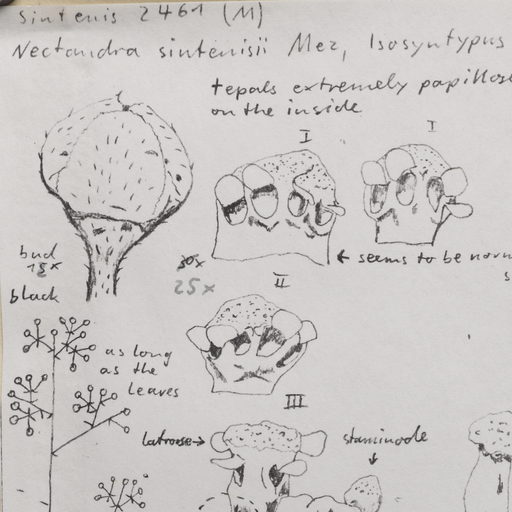 Sintenis 2461 (M)
Nectandra sintenisii Mez, Isosyntypus
tepals extremely papillose
on the inside
I
I
bud
18x
black
30x
25x
← seems to be
II
as long
as the
leaves
III
latrorse →
staminode